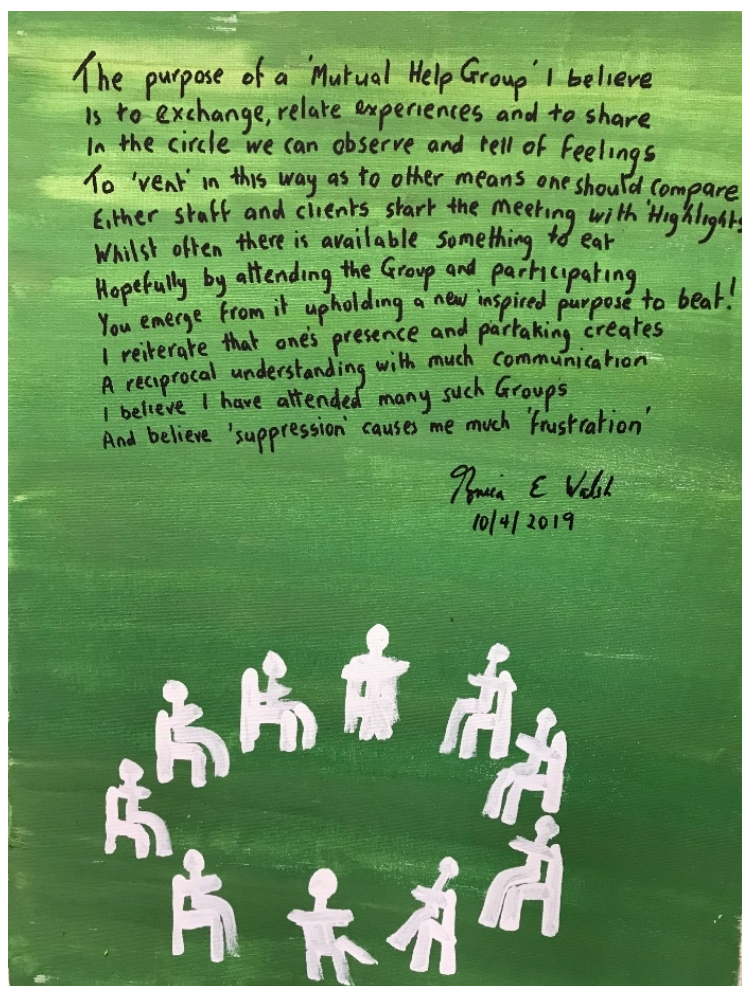 The purpose of a 'Mutual Help Group' I believe
Is to exchange, relate experiences and to share
In the circle we can observe and tell of feelings
To 'vent' in this way as to other means one should compare
Either staff and clients start the meeting with 'Highlights
Whilst often there is available something to eat
Hopefully by attending the Group and participating
You emerge from it upholding a new inspired purpose to beat!
I reiterate that one's presence and partaking creates
A reciprocal understanding with much communication
I believe I have attended many such Groups
And believe 'suppression' causes me much 'frustration'
E Walsh
10/4/2019